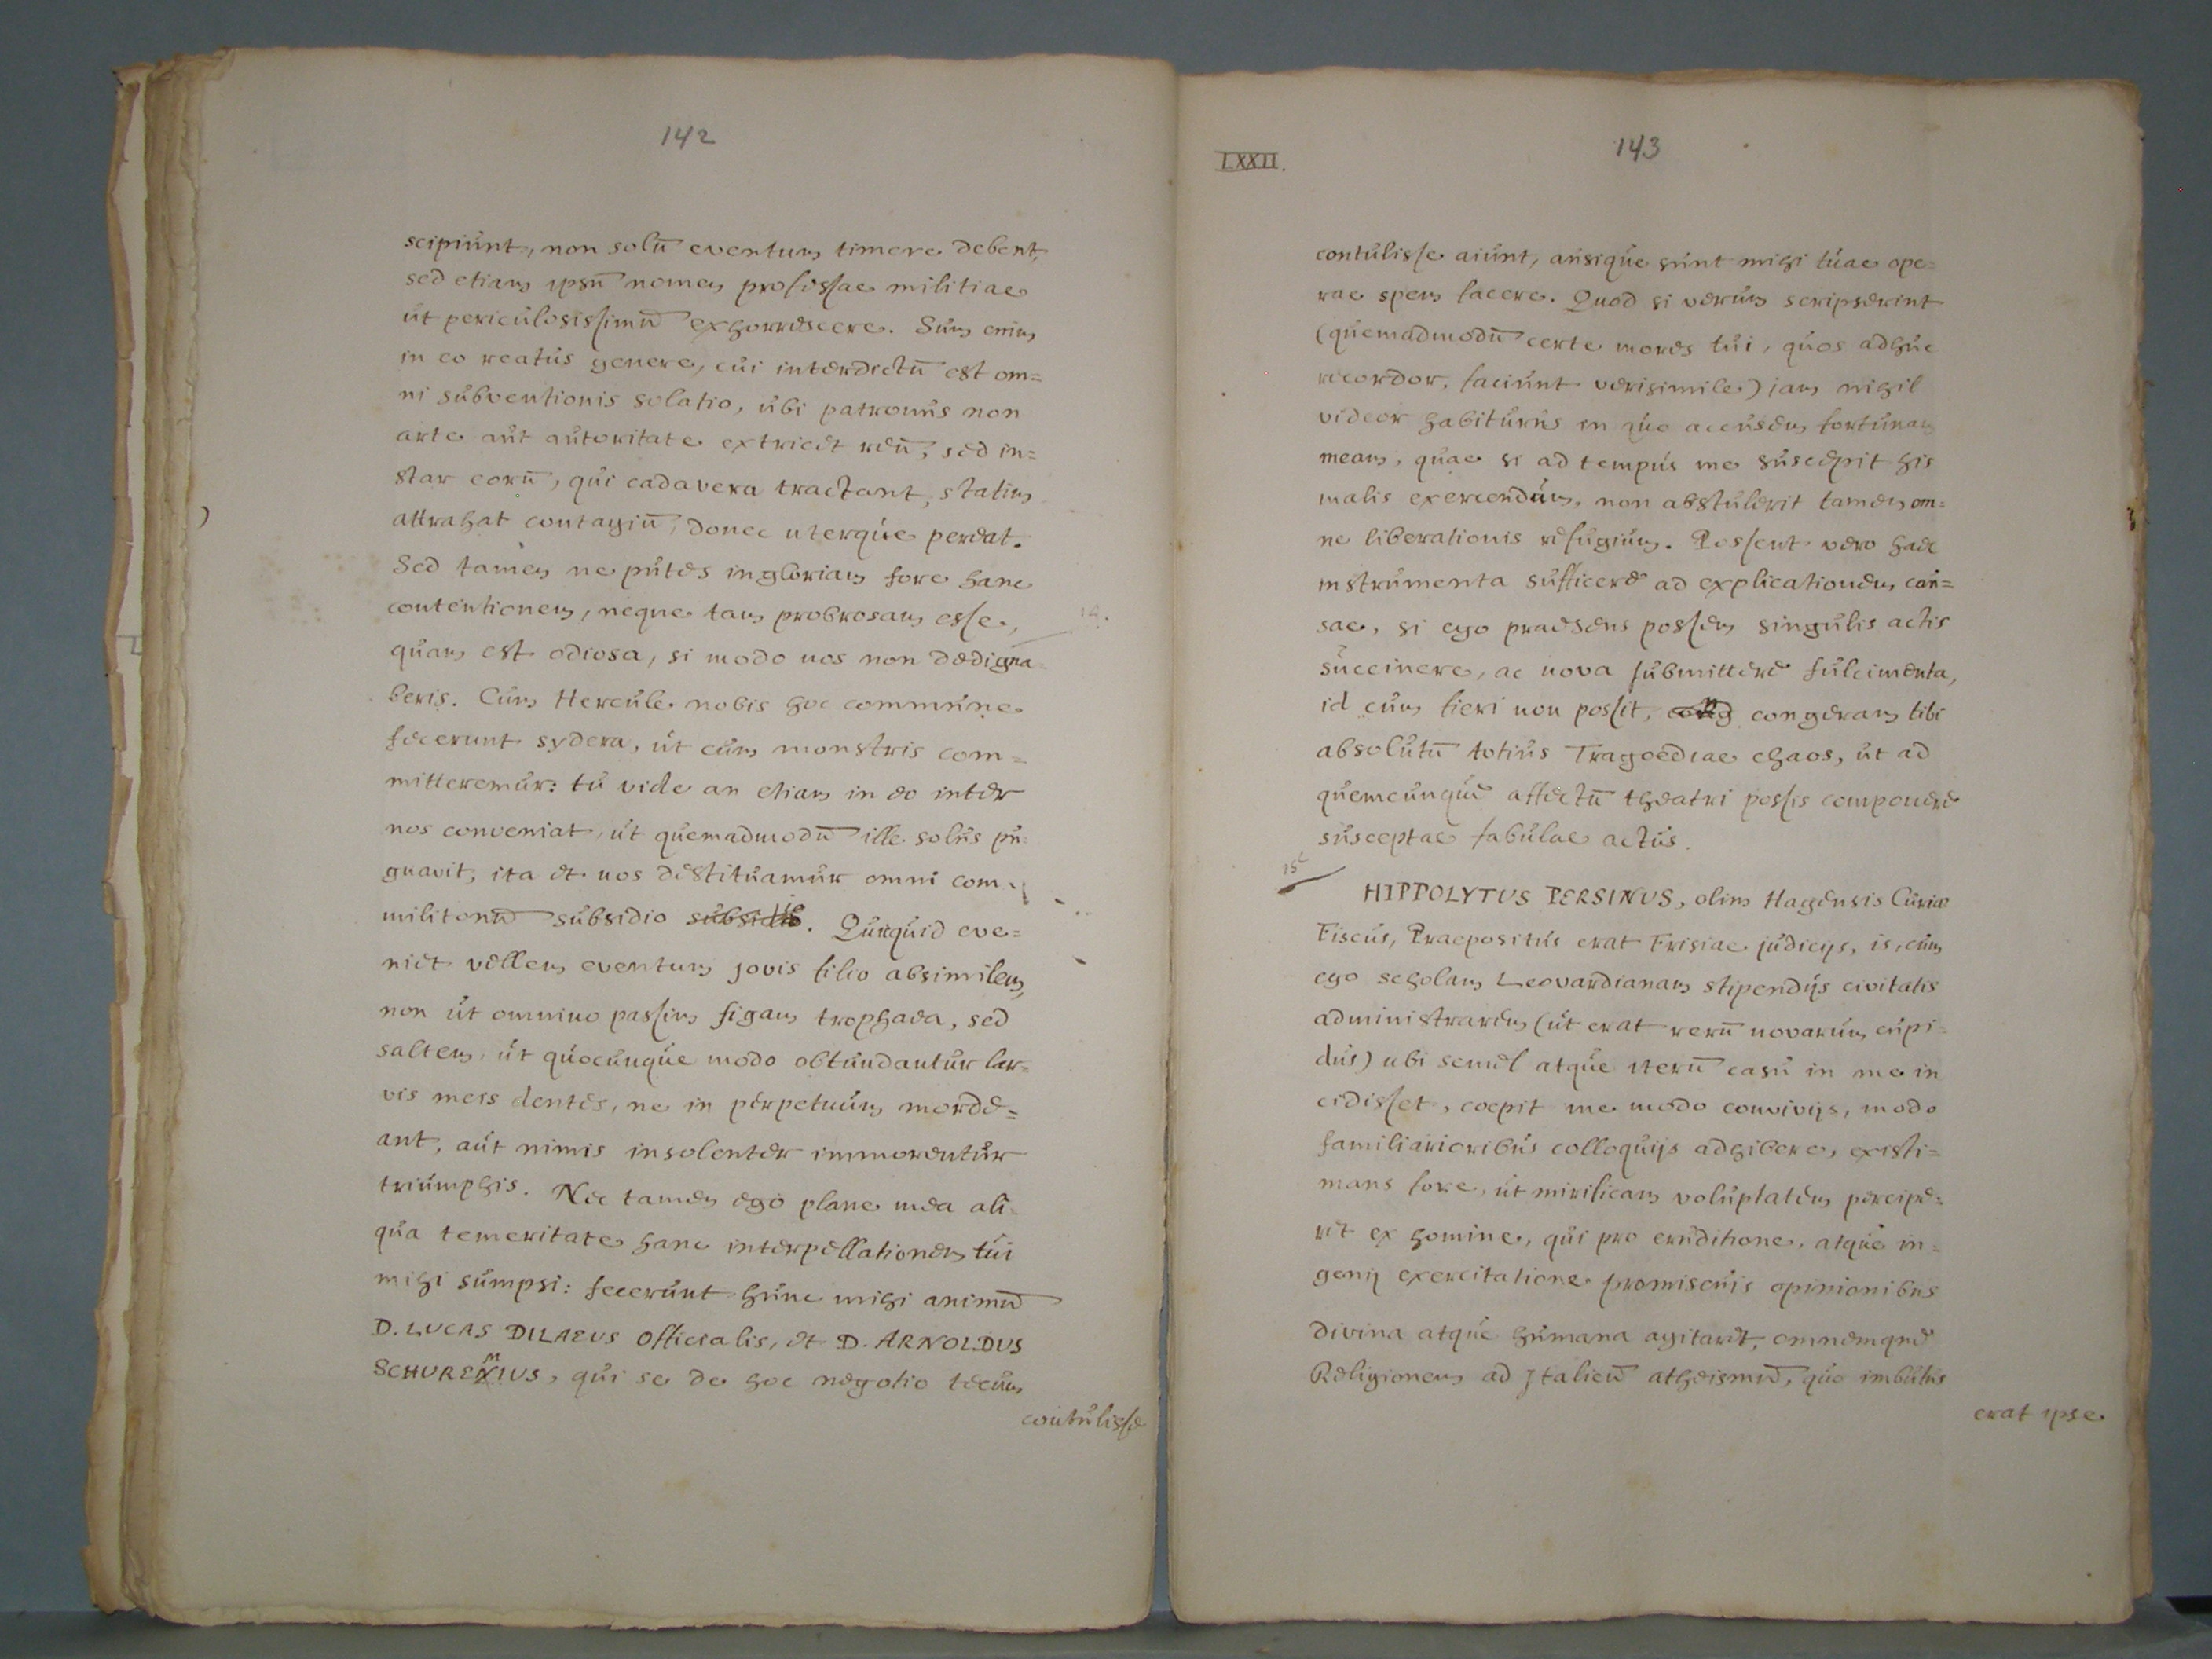 142
scipiunt, non solū eventum timere debent,
sed etiam ipsū nomen professae militiae
ut periculosissimū exhorrescere. Sum enim
in eo reatus genere, cui interdictū est om=
ni subventionis solatio, ubi patronus non
arte aut autoritate extricet reū, sed in=
star eorū, qui cadavera tractant, statim
attrahat contagiū, donec uterque pereat.
Sed tamen ne putes ingloriam fore hanc
contentionem, neque tam probrosam esse,
quam est odiosa, si modo nos non dedigna=
beris. Cum Hercule nobis hoc commune
fecerunt sydera, ut cum monstris com=
mitteremur: tu vide an etiam in eo inter
nos conveniat, ut quemadmodū ille solus pu=
gnavit, ita et nos destituamur omni com=
militonū subsidio subsidio. Quicquid eve=
niet vellem eventum Jovis filio absimilem,
non ut omnino passim figam trophaea, sed
saltem, ut quocunque modo obtundantur lar=
vis meis dentes, ne in perpetuum morde=
ant, aut nimis insolenter immorentur
triumphis. Nec tamen ego plane mea ali=
qua temeritate hanc interpellationem tui
mihi sumpsi: fecerunt hunc mihi animū
D. LUCAS DILAEUS Officialis, et D. ARNOLDUS
SCHURENIUS, qui se de hoc negotio tecum
contulisse
LXXII.
143
contulisse aiunt, ausique sunt mihi tuae ope=
rae spem facere. Quod si verum scripserint
(quemadmodū certe mores tui, quos adhuc
recordor, faciunt verisimile) jam nihil
videor habiturus in quo accusem fortunam
meam, quae si ad tempus me susceperit his
malis exercendum, non abstulerit tamen om=
ne liberationis refugium. Possent vero haec
instrumenta sufficere ad explicationem cau=
sae, si ego praesens possem singulis actis
succinere, ac nova submittere fulcimenta,
id cum fieri non possit, cong congeram tibi
absolutū totius Tragoediae chaos, ut ad
quemcunque affectū theatri possis componere
susceptae fabulae actus.
15
HIPPOLYTUS PERSINUS, olim Hagensis Curiae
Fiscus, Praepositus erat Frisiae judicijs, is, cum
ego scholam Leovardianam stipendijs civitatis
administrarem (ut erat rerū novarum cupi=
dus) ubi semel atque iterū casu in me in
cidisset, coepit me modo convivijs, modo
familiarioribus colloquijs adhibere, existi=
mans fore, ut mirificam voluptatem percipe=
ret ex homine, qui pro eruditione, atque in=
genij exercitatione promiscuis opinionibus
divina atque humana agitaret, omnemque
Religionem ad Italicū atheismū, quo imbutus
erat ipse